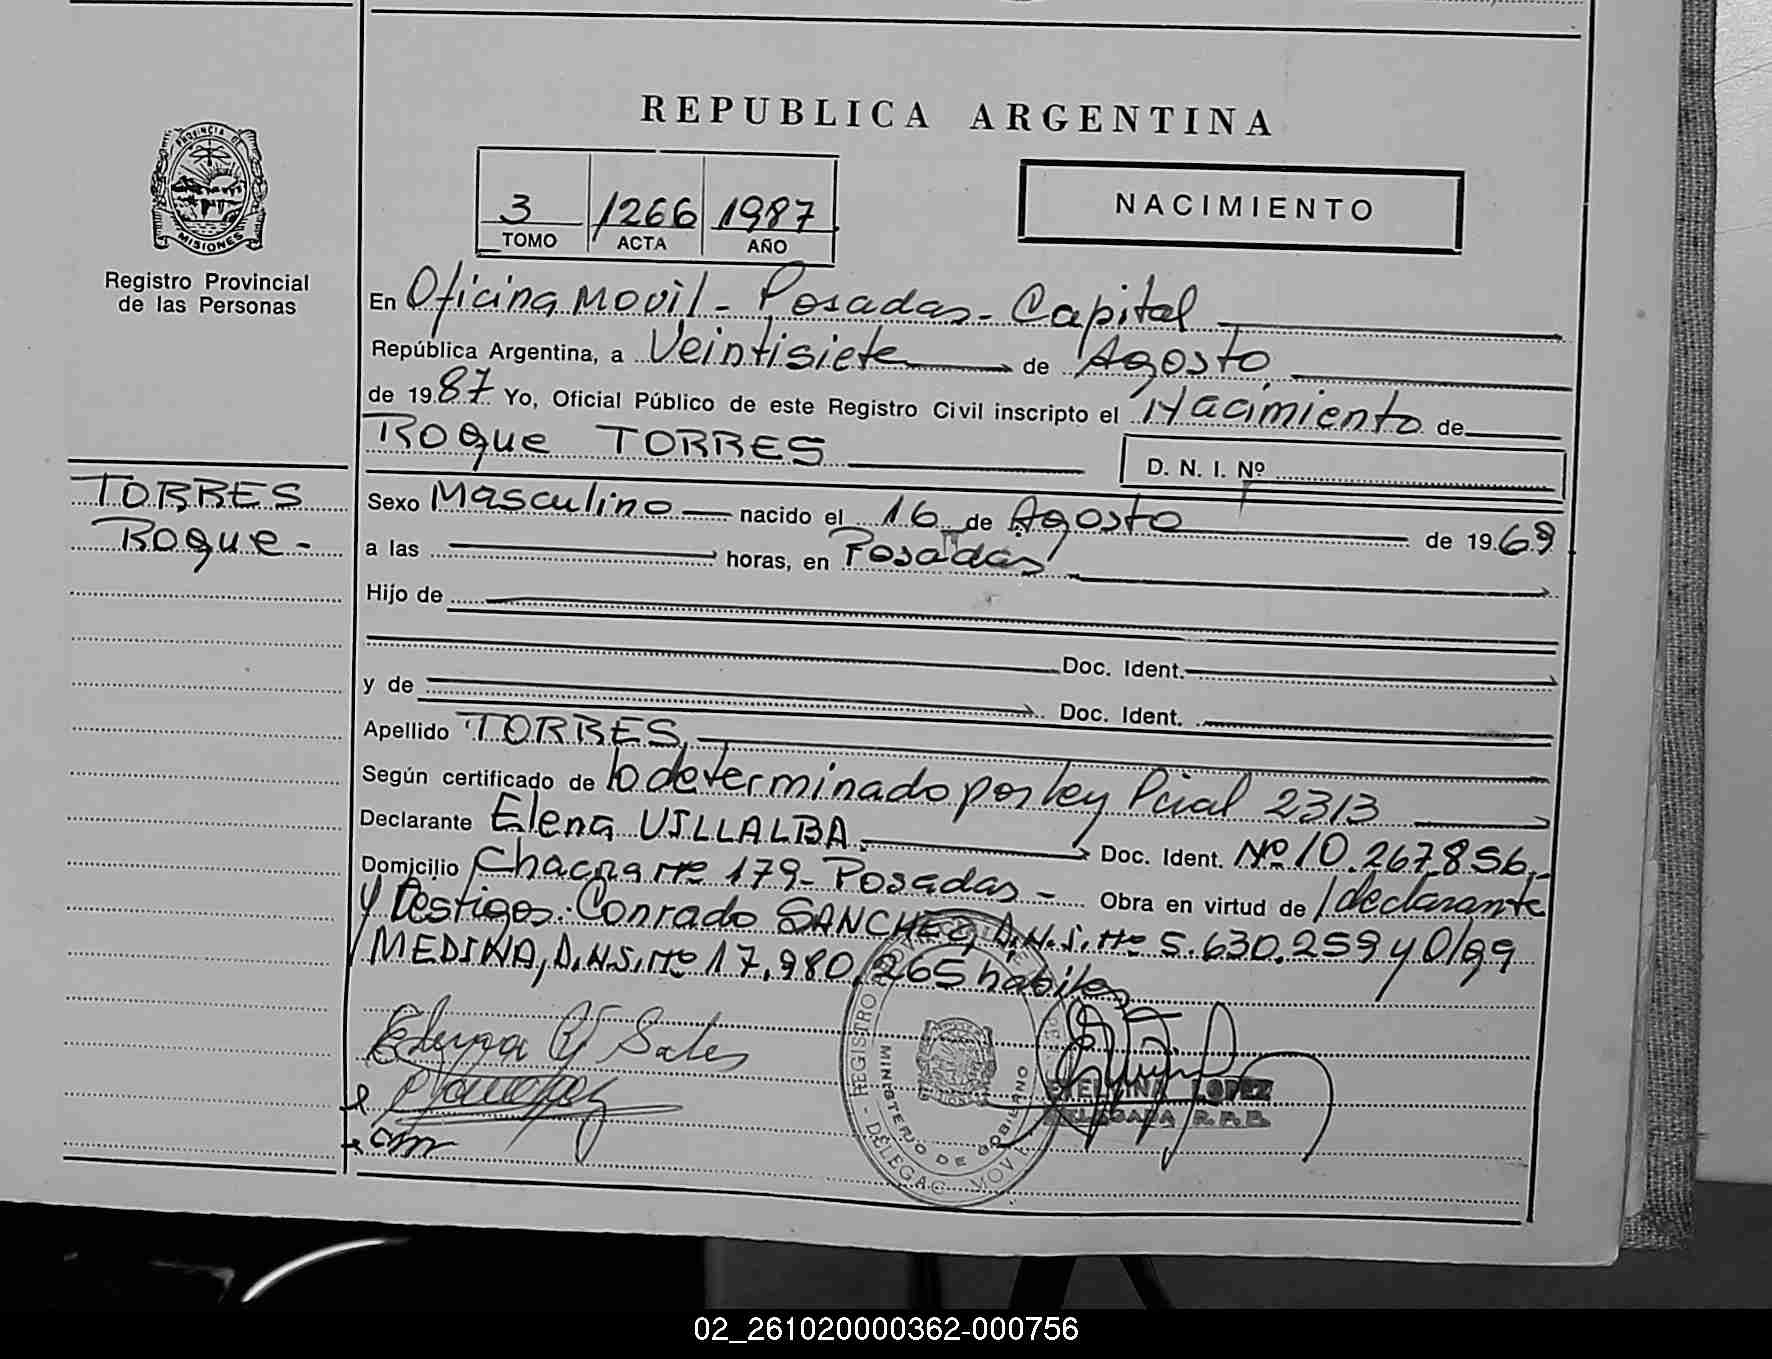 REPUBLICA ARGENTINA
PROVINCIA DE
MISIONES
Registro Provincial
de las Personas
3 1266 1987
TOMO ACTA AÑO
NACIMIENTO
En Oficina Movil - Posadas - Capital
República Argentina, a Veintisiete de Agosto
de 1987 Yo, Oficial Público de este Registro Civil inscripto el Nacimiento de
Roque TORRES
D. N. I. Nº
TORRES
Roque -
Sexo Masculino nacido el 16 de Agosto de 1969
a las horas, en Posadas
Hijo de
Doc. Ident.
y de Doc. Ident.
Apellido TORRES
Según certificado de lo determinado por ley Pcial 2313
Declarante Elena VILLALBA Doc. Ident. Nº 10.267.856.-
Domicilio Chacra Nº 179 - Posadas - Obra en virtud de declarante
y testigos: Conrado SANCHEZ, D.N.I. Nº 5.630.259 y Olga
MEDINA, D.N.I. Nº 17.980.265 habiles
LOPEZ
DELEGADA R.P.P.
REGISTRO
MINISTERIO DE GOBIERNO
DELEGAC MOVIL
02_261020000362-000756